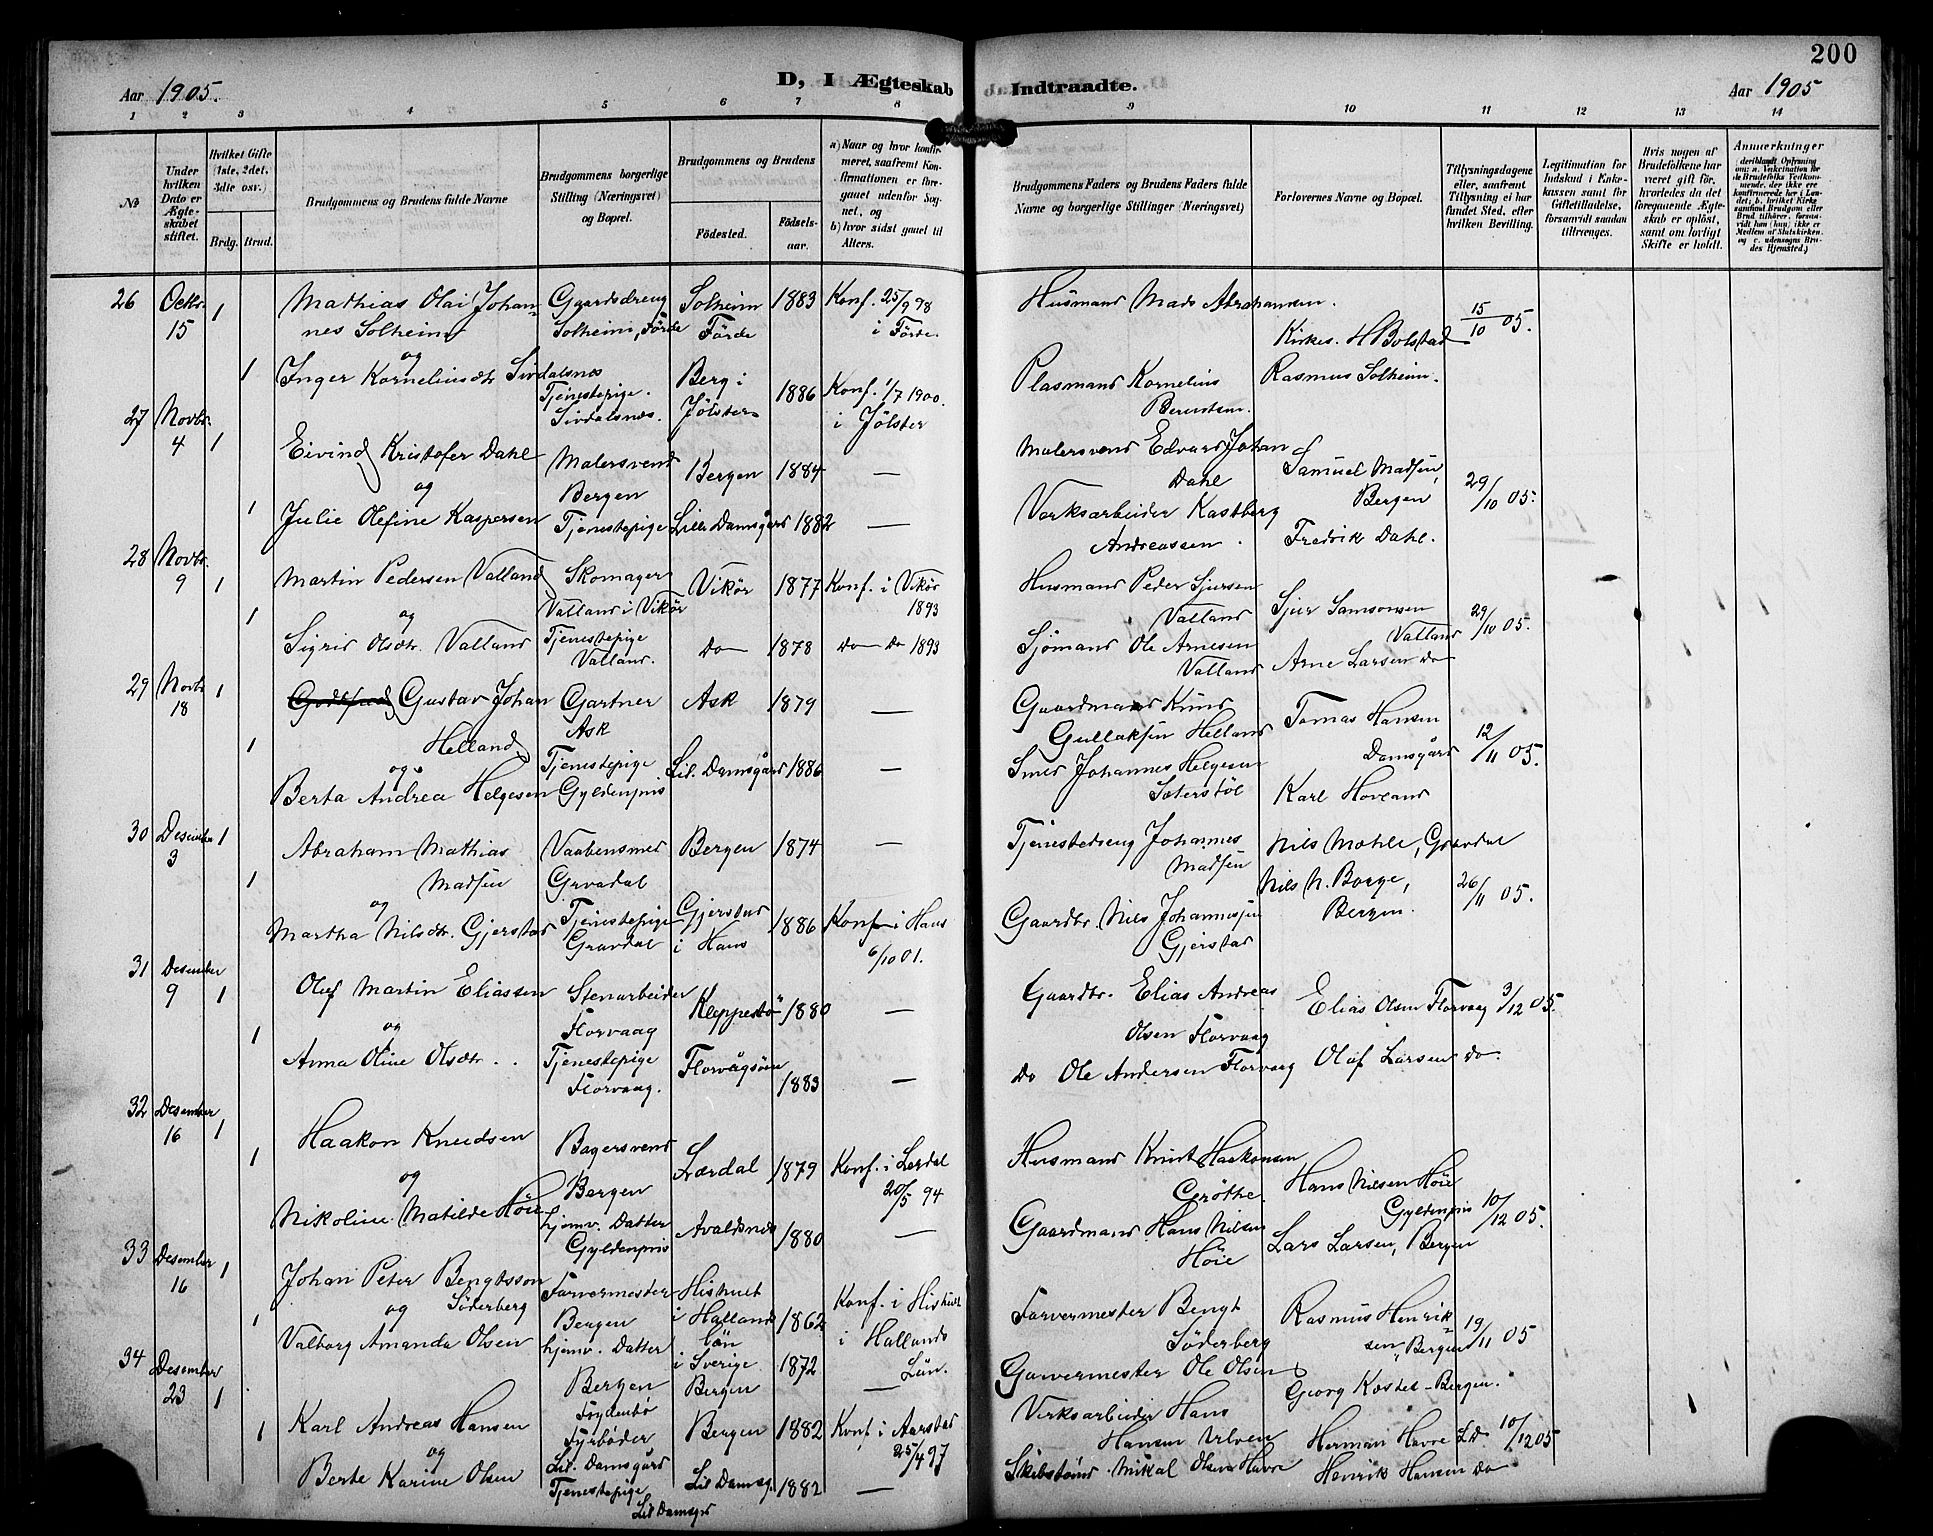 200
D, I Ægteskab Indtraadte.
Aar 1905.
Aar 1905
1 2 3 4 5 6 7 8 9 10 11 12 13 14
No
Under hvilken Dato er Ægteskabet stiftet.
Hvilket Gifte (1ste, 2det, 3die osv.)
Brdg. Brud.
Brudgommens og Brudens fulde Navne
Brudgommens borgerlige Stilling (Næringsvei) og Bopæl.
Brudgommens og Brudens
Fødested.
Fødselsaar.
a) Naar og hvor konfirmeret, saafremt Konfirmationen er foregaaet udenfor Sognet, og
b) hvor sidst gaaet til Alters.
Brudgommens Faders og Brudens Faders fulde Navne og borgerlige Stillinger (Næringsvei)
Forlovernes Navne og Bopæl.
Tillysningsdagene eller, saafremt Tillysning ei har fundet Sted, efter hvilken Bevilling.
Legitimation for Indskud i Enkekassen samt for Giftetilladelse, forsaavidt saadan tiltrænges.
Hvis nogen af Brudefolkene har været gift før, hvorledes da det foregaaende Ægteskab er opløst, samt om lovligt Skifte er holdt.
Anmerkninger
26 Octbr. 15 1
Mathias Olai Johannes Solheim
Gaardsdreng
Solheim, Förde
Solheim
Förde
1883
Konf. 25/9 98
i Förde.
Husmand Mads Abrahamsen.
Kirkes. H Bolstad
15/10 05.
og
1 Inger Korneliusdtr Sivdalsnes
Tjenestepige.
Sivdalsnes.
Berg i
Jölster
1886
Konf. 1/7 1900.
i Jölster
Plasmand Kornelius
Berentsen.
Rasmus Solheim.
27 Novbr. 4 1
Eivind Kristofer Dahl
Malersvend
Bergen
Bergen 1884 —
Malersvend Edvard Johan
Dahl
Samuel Madsen,
Bergen
29/10 05.
og
1 Julie Olefine Kaspersen
Tjenestepige
Lille Damsgård 1882 —
Verksarbeider Kastberg
Andreassen.
Fredrik Dahl.
28 Novbr. 9 1
Martin Pedersen Valland
Skomager
Valland i Vikör
Vikör 1877
Konf. i Vikör
1893
Husmand Peder Sjursen
Valland
Sjur Samsonsen
Valland
29/10 05.
og
1 Sigrid Olsdtr. Valland
Tjenestepige
Valland.
Do 1878
Do Do 1893
Sjömand Ole Arnesen
Valland
Arne Larsen do
29 Novbr 18 1
Gustav Johan
Helland
Gartner
Ask
Ask 1879 —
Gaardmand Knud
Gullaksen Helland
Tomas Hansen
Damsgård
12/11 05.
og
1 Berta Andrea Helgesen
Tjenestepige
Gyldenpris
Lil. Damsgård 1886 —
Smed Johannes Helgesen
Sæterstöl
Karl Hovland
30 Desember 3 1
Abraham Mathias
Madsen
Vaabensmed
Gravdal
Bergen 1874 —
Tjenestedreng Johannes
Madsen
Nils Mæhle, Gravdal
26/11 05.
og
1 Martha Nilsdtr. Gjerstad
Tjenestepige
Gravdal
Gjerstad
i Haus
1886
Konf i Haus
6/10 01.
Gaardbr. Nils Johannesen
Gjerstad
Nils N. Borge,
Bergen.
31 Desember 9 1
Oluf Martin Eliassen
Stenarbeider
Florvaag
Kleppestö 1880 —
Gaardbr. Elias Andreas
Olsen Florvaag
Elias Olsen Florvaag
3/12 05.
og
1 Anna Oline Olsdtr.
Tjenestepige
Florvaag.
Florvågsöen 1883 —
Do Ole Andersen Florvaag
Olaf Larsen do
32 Desember 16 1
Haakon Knudsen
Bagersvend
Bergen
Lærdal 1879
Konf. i Lærdal
20/5 94
Husmand Knut Haakonsen
Gröthe.
Hans Nilsen Höie
Gyldenpris
10/12 05.
og
1 Nikoline Matilde Höie
hjemv. Datter
Gyldenpris
Avaldsnes 1880 —
Gaardmand Hans Nilsen
Höie
Lars Larsen, Bergen
33 Desember 16 1
Johan Peter Bengtsson
Söderberg
Farvermester
Bergen
Hishult
i Hallands
län
i Sverige
1862
Konf. i Hishult
i Hallands
Län.
Farvermester Bengt
Söderberg
Rasmus Henriksen
Bergen
19/11 05
og
1 Valborg Amanda Olsen
hjemv. Datter
Bergen
Bergen 1872 —
Garvermester Ole Olsen
Georg Kastel - Bergen.
34 Desember 23 1
Karl Andreas Hansen
Fyrböder
Lil. Damsgård
Bergen 1882
Konf i Aarstad
25/4 97
Verksarbeider Hans
Hansen Ulven
Herman Havre L.D.
10/12 05
og
1 Berte Karine Olsen
Tjenestepige
Lil Damsgrd
Lil Damsg. 1882 —
Skibstömr. Mikal Olsen Havre
Henrik Hansen Do